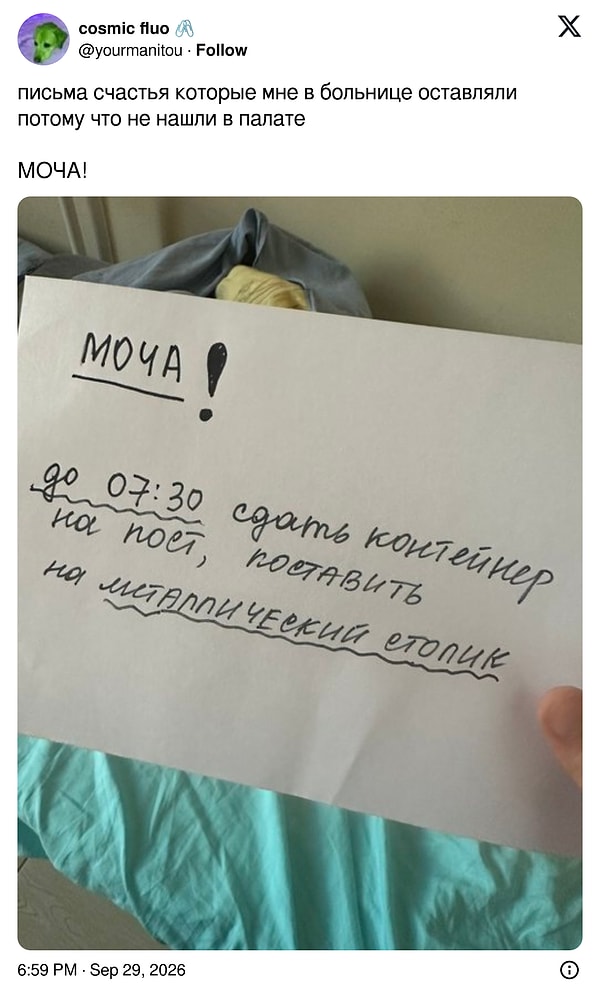 cosmic fluo
@yourmanitou · Follow
письма счастья которые мне в больнице оставляли
потому что не нашли в палате
МОЧА!
МОЧА!
до 07:30 сдать контейнер
на пост, поставить
на металлический столик
6:59 PM · Sep 29, 2026